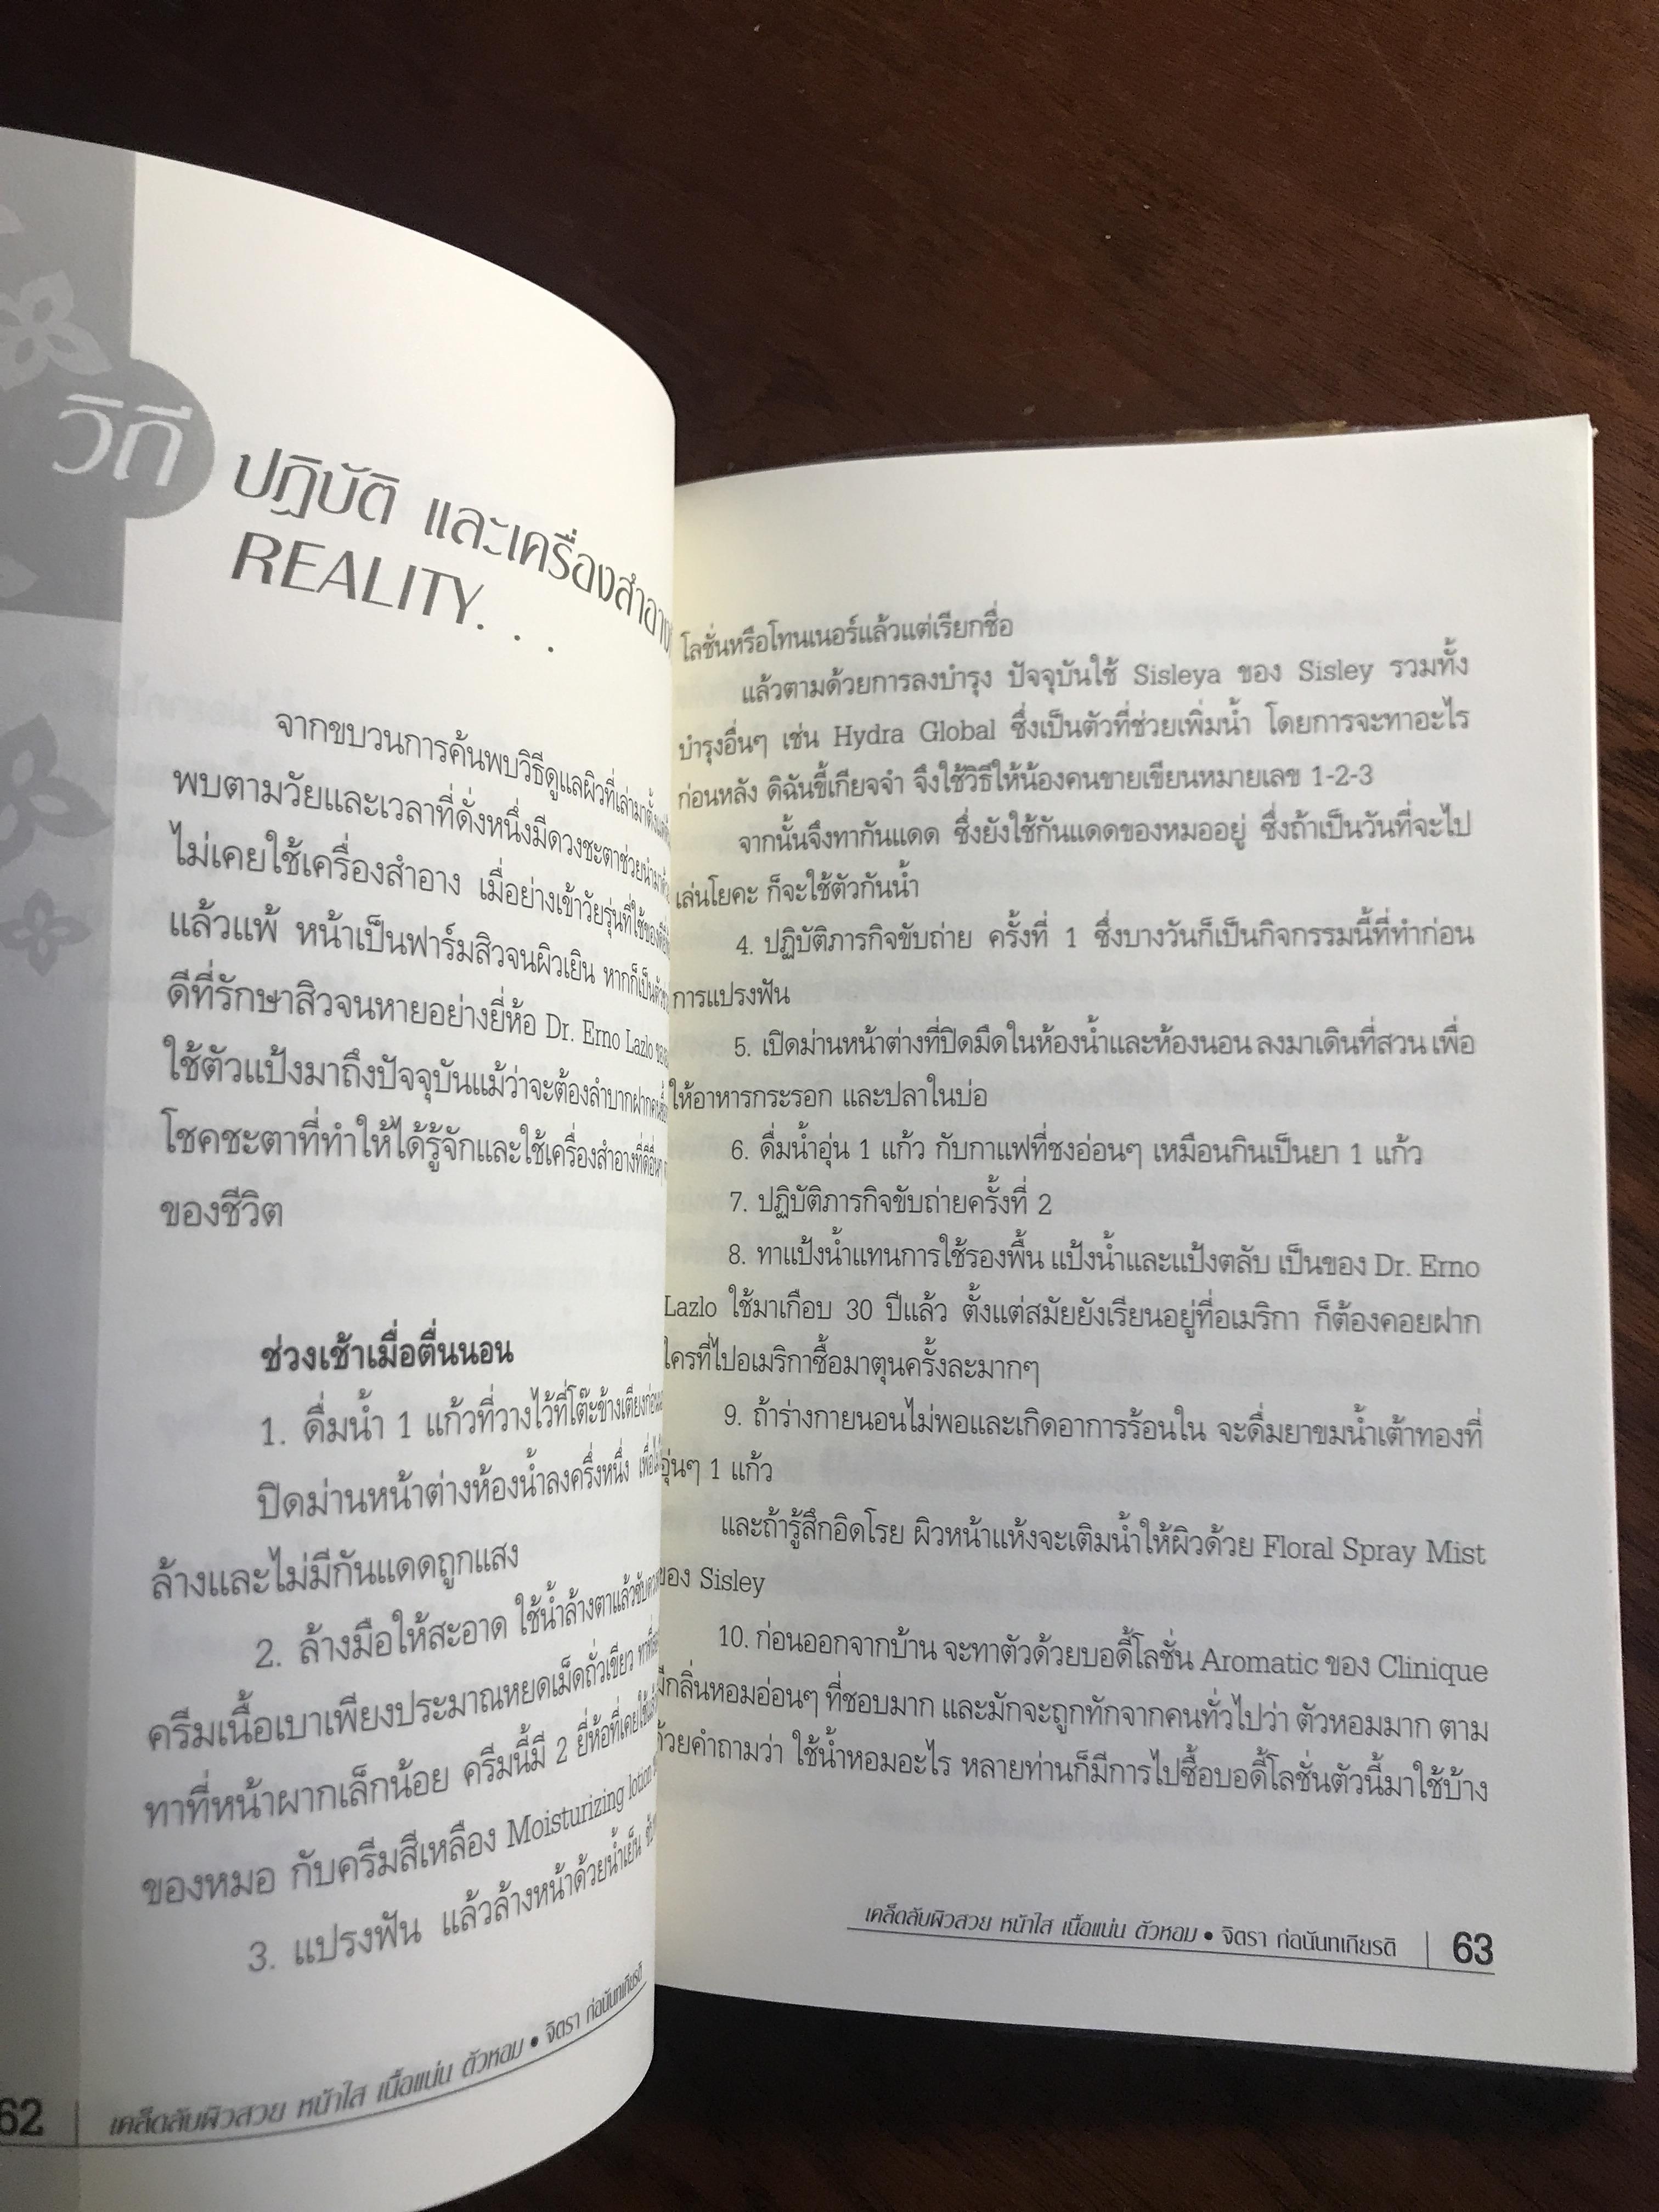 วิถี
ปฏิบัติ และเครื่องสำอาง
REALITY. . .
จากขบวนการค้นพบวิธีดูแลผิวที่เล่ามาตั้งแต่
พบตามวัยและเวลาที่ดั่งหนึ่งมีดวงชะตาช่วยนำมา
ไม่เคยใช้เครื่องสำอาง เมื่อย่างเข้าวัยรุ่นที่ใช้ของ
แล้วแพ้ หน้าเป็นฟาร์มสิวจนผิวเยิน หากก็เป็น
ดีที่รักษาสิวจนหายอย่างยี่ห้อ Dr. Erno Lazlo
ใช้ตัวแป้งมาถึงปัจจุบันแม้ว่าจะต้องลำบากฝากคนซื้อ
โชคชะตาที่ทำให้ได้รู้จักและใช้เครื่องสำอางที่ดีอื่นๆ
ของชีวิต
ช่วงเช้าเมื่อตื่นนอน
1. ดื่มน้ำ 1 แก้วที่วางไว้ที่โต๊ะข้างเตียงก่อน
ปิดม่านหน้าต่างห้องน้ำลงครึ่งหนึ่ง เพื่อ
ล้างและไม่มีกันแดดถูกแสง
2. ล้างมือให้สะอาด ใช้น้ำล้างตาแล้วซับ
ครีมเนื้อเบาเพียงประมาณหยดเม็ดถั่วเขียว
ทาที่หน้าผากเล็กน้อย ครีมนี้มี 2 ยี่ห้อที่เคยใช้
ของหมอ กับครีมสีเหลือง Moisturizing lotion
3. แปรงฟัน แล้วล้างหน้าด้วยน้ำเย็น
62 เคล็ดลับผิวสวย หน้าใส เนื้อแน่น ตัวหอม • จิตรา ก่อนันทเกียรติ
โลชั่นหรือโทนเนอร์แล้วแต่เรียกชื่อ
แล้วตามด้วยการลงบำรุง ปัจจุบันใช้ Sisleya ของ Sisley รวมทั้ง
บำรุงอื่นๆ เช่น Hydra Global ซึ่งเป็นตัวที่ช่วยเพิ่มน้ำ โดยการจะทาอะไร
ก่อนหลัง ดิฉันขี้เกียจจำ จึงใช้วิธีให้น้องคนขายเขียนหมายเลข 1-2-3
จากนั้นจึงทากันแดด ซึ่งยังใช้กันแดดของหมออยู่ ซึ่งถ้าเป็นวันที่จะไป
เล่นโยคะ ก็จะใช้ตัวกันน้ำ
4. ปฏิบัติภารกิจขับถ่าย ครั้งที่ 1 ซึ่งบางวันก็เป็นกิจกรรมนี้ที่ทำก่อน
การแปรงฟัน
5. เปิดม่านหน้าต่างที่ปิดมืดในห้องน้ำและห้องนอน ลงมาเดินที่สวน เพื่อ
ให้อาหารกระรอก และปลาในบ่อ
6. ดื่มน้ำอุ่น 1 แก้ว กับกาแฟที่ชงอ่อนๆ เหมือนกินเป็นยา 1 แก้ว
7. ปฏิบัติภารกิจขับถ่ายครั้งที่ 2
8. ทาแป้งน้ำแทนการใช้รองพื้น แป้งน้ำและแป้งตลับ เป็นของ Dr. Erno
Lazlo ใช้มาเกือบ 30 ปีแล้ว ตั้งแต่สมัยยังเรียนอยู่ที่อเมริกา ก็ต้องคอยฝาก
ใครที่ไปอเมริกาซื้อมาตุนครั้งละมากๆ
9. ถ้าร่างกายนอนไม่พอและเกิดอาการร้อนใน จะดื่มยาขมน้ำเต้าทองที่
อุ่นๆ 1 แก้ว
และถ้ารู้สึกอิดโรย ผิวหน้าแห้งจะเติมน้ำให้ผิวด้วย Floral Spray Mist
ของ Sisley
10. ก่อนออกจากบ้าน จะทาตัวด้วยบอดี้โลชั่น Aromatic ของ Clinique
มีกลิ่นหอมอ่อนๆ ที่ชอบมาก และมักจะถูกทักจากคนทั่วไปว่า ตัวหอมมาก ตาม
ด้วยคำถามว่า ใช้น้ำหอมอะไร หลายท่านก็มีการไปซื้อบอดี้โลชั่นตัวนี้มาใช้บ้าง
เคล็ดลับผิวสวย หน้าใส เนื้อแน่น ตัวหอม • จิตรา ก่อนันทเกียรติ 63